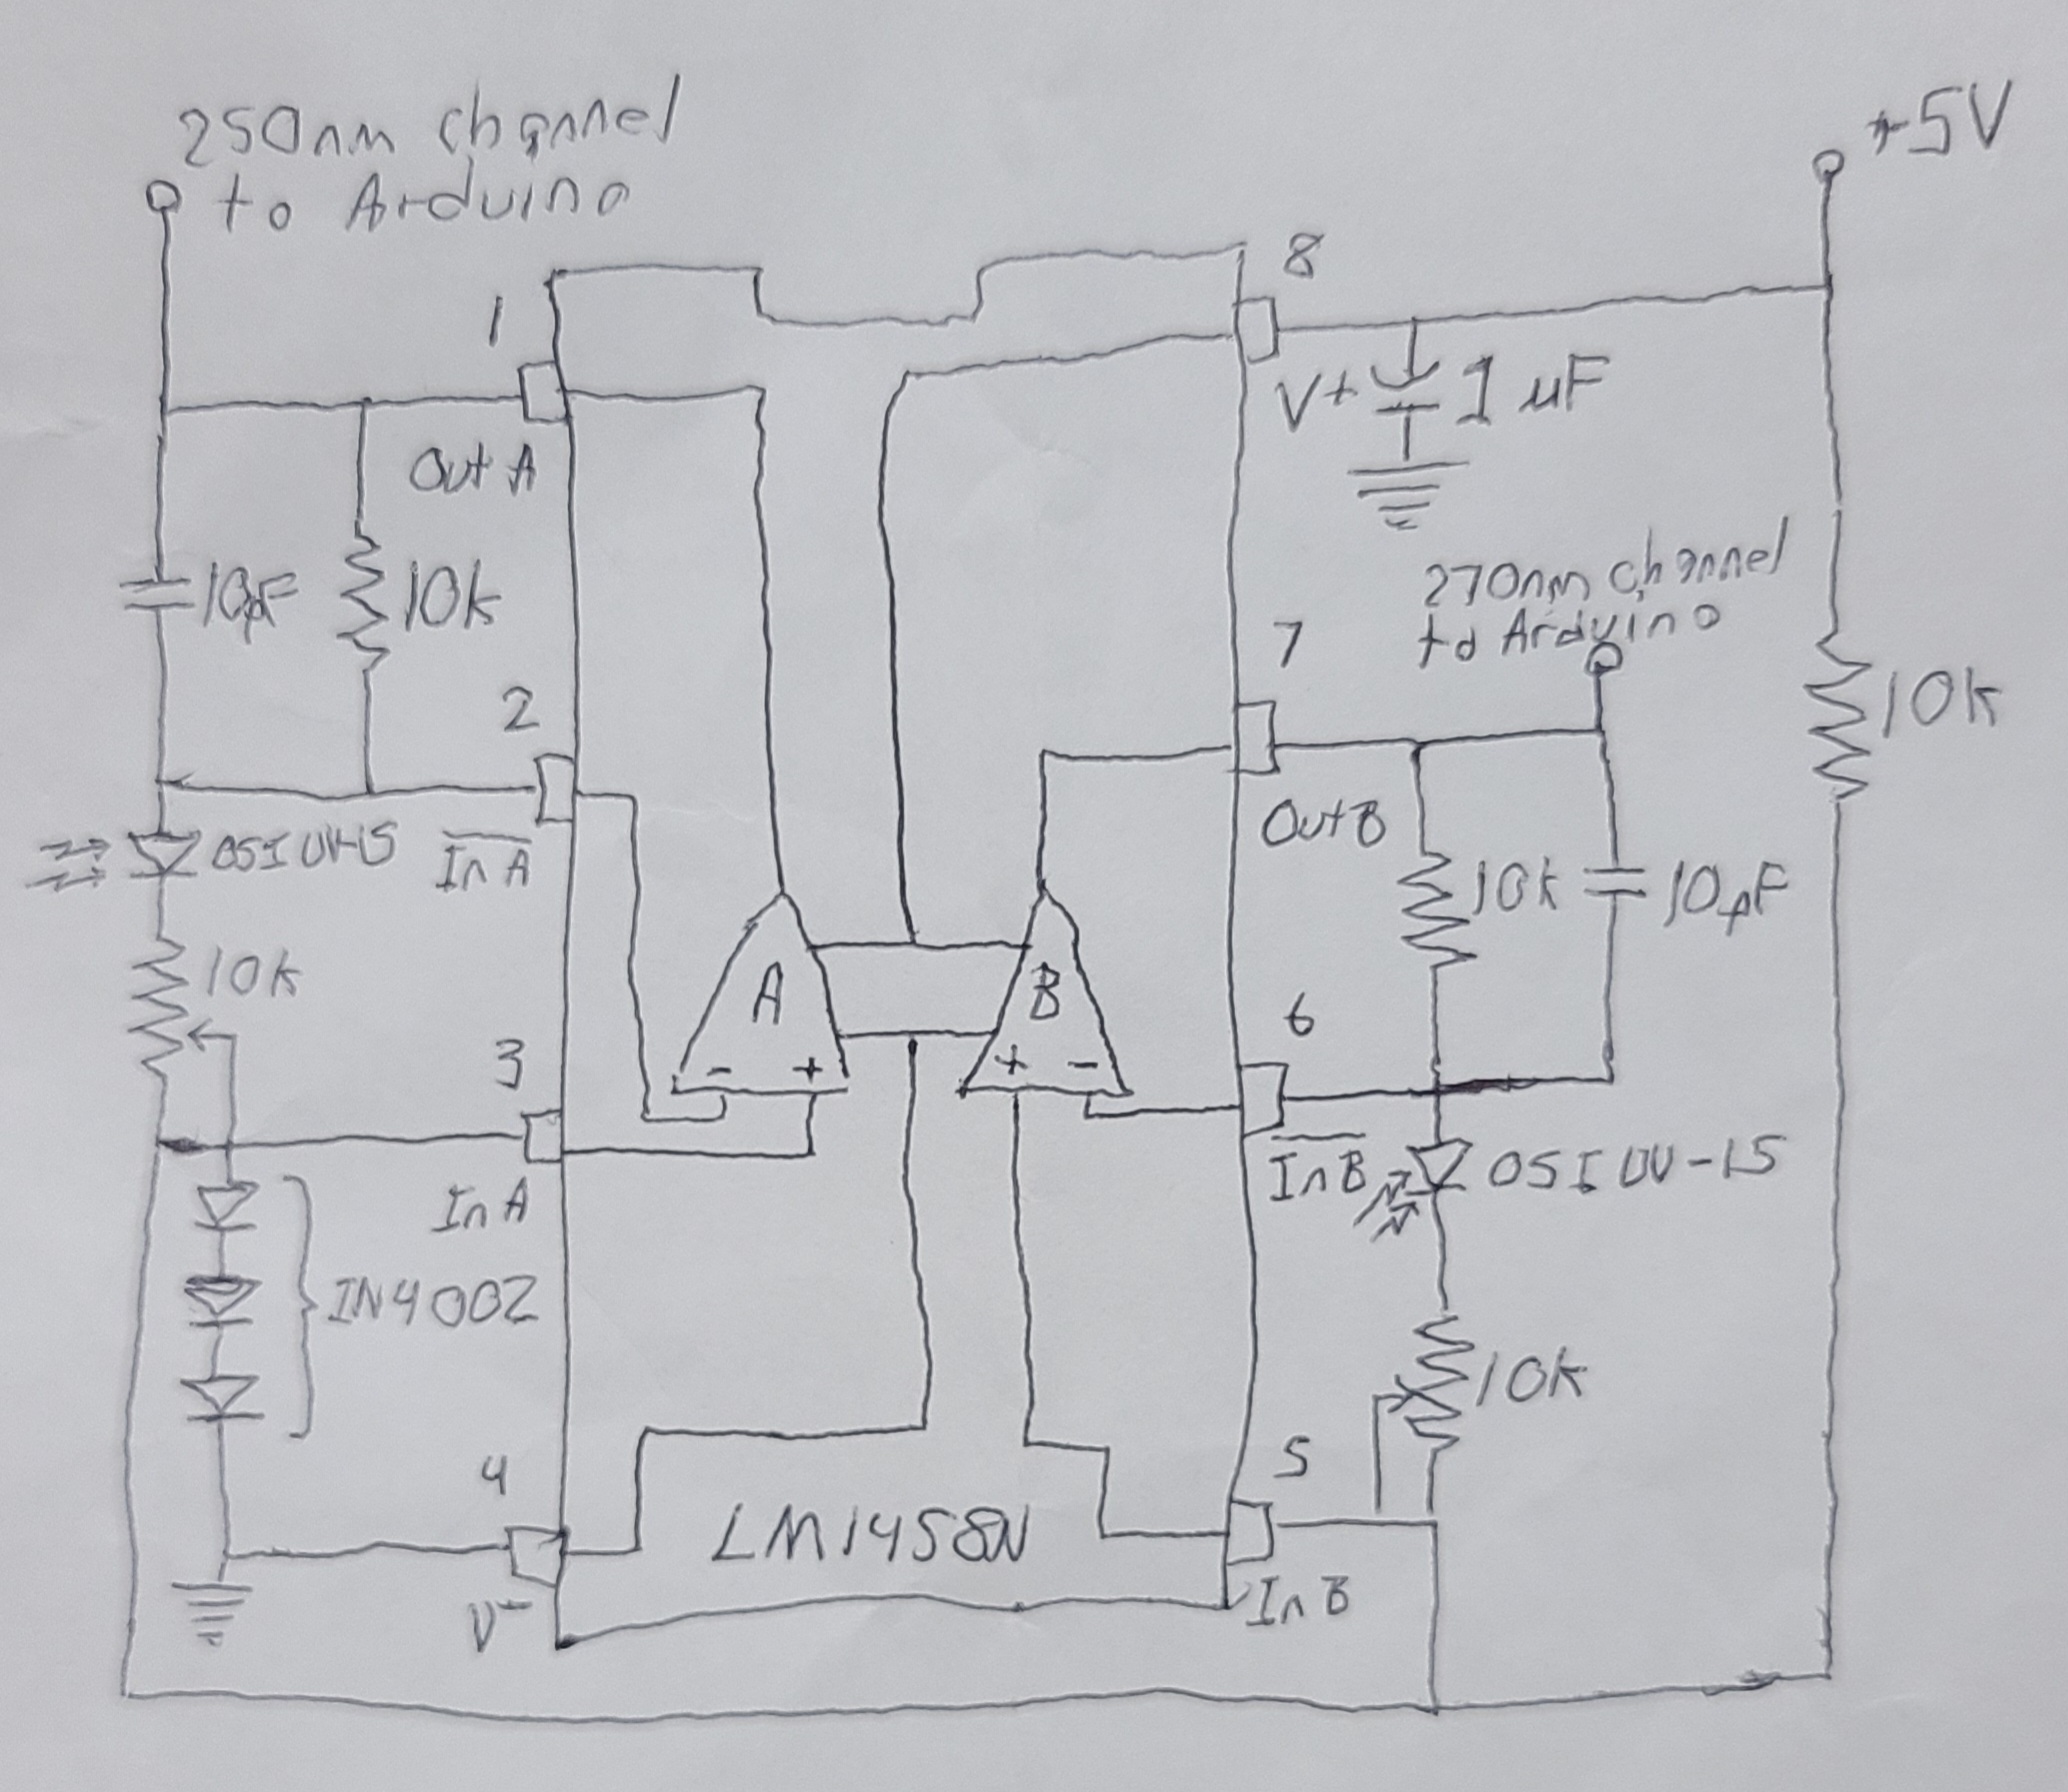 250nm channel
to Arduino
+5V
1
8
V+
1 µF
Out A
10pF
10k
270nm channel
to Arduino
7
2
10k
OSI UV-1S
In A
Out B
10k
10pF
10k
A
B
- +
+ -
3
6
In A
In B
OSI UV-1S
IN4002
10k
4
5
LM1458N
V-
In B